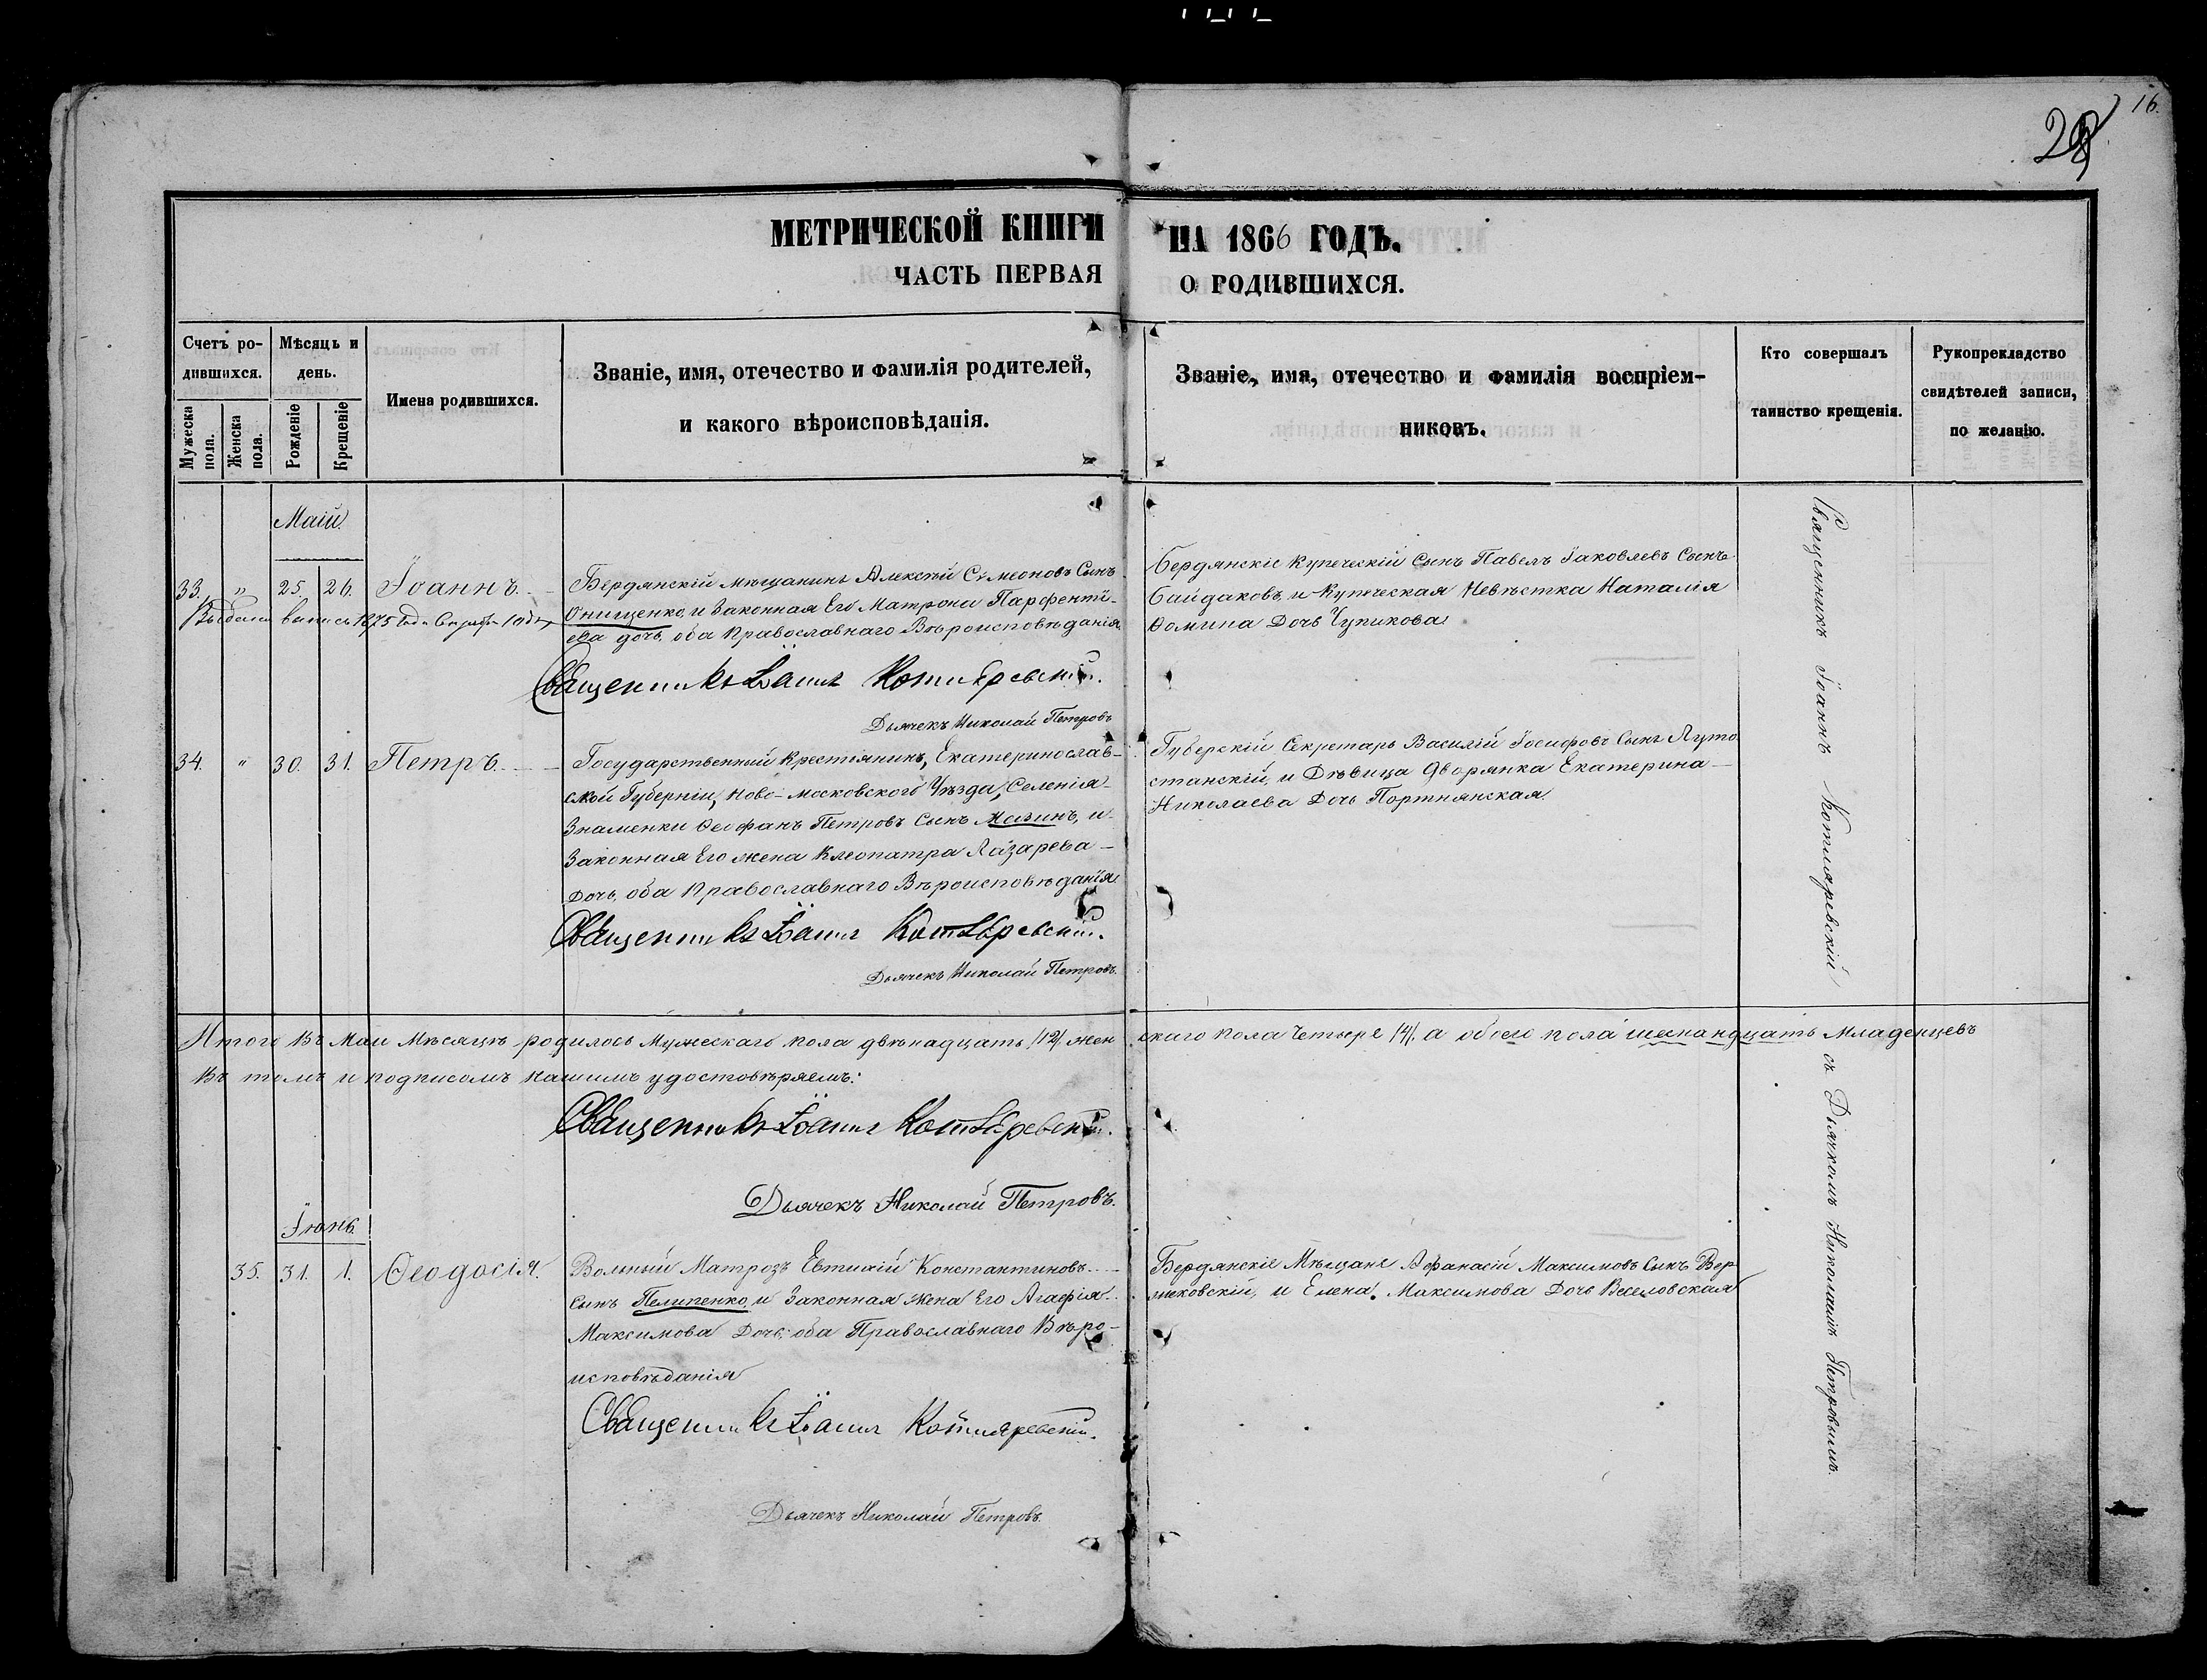 16.
28
МЕТРИЧЕСКОЙ КНИГИ НА 1866 ГОДЪ.
ЧАСТЬ ПЕРВАЯ О РОДИВШИХСЯ.
Счетъ ро-
дившихся.
Мужеска пола.
Женска пола.
Мѣсяцъ и
день.
Рожденіе
Крещеніе
Имена родившихся.
Званіе, имя, отечество и фамилія родителей,
и какого вѣроисповѣданія.
Званіе, имя, отечество и фамилія воспріем-
никовъ.
Кто совершалъ
таинство крещенія.
Рукоприкладство
свидѣтелей записи,
по желанію.
Маій
33. " 25. 26. Іоаннъ.
Выдана выпись 1875 года
Бердянскій мѣщанинъ Алексѣй Симеоновъ Сынъ
Онищенко, и Законная Его Матрона Парфенті-
ева дочь, оба Православнаго Вѣроисповѣданія
Священникъ Іоаннъ Котляревскій.
Дьячекъ Николай Петровъ
Бердянскіе Купеческій Сынъ Павелъ Іаковлевъ Сынъ
Байдаковъ, и Купеческая Невѣстка Наталія
Ѳомина Дочь Чупикова
34. " 30. 31. Петръ.
Государственный Крестіянинъ, Екатеринослав-
ской Губерніи, Ново-Московского Уѣзда, Селенія
Знаменки Ѳеофанъ Петровъ Сынъ Мазинъ, и
Законная Его жена Клеопатра Лазарева
Дочь, оба Православнаго Вѣроисповѣданія.
Священникъ Іоаннъ Котляревскій.
Дьячекъ Николай Петровъ.
Губерскій Секретарь Василій Іосифовъ Сынъ Луто
станскій, и Дѣвица Дворянка Екатерина
Николаева Дочь Портнянская.
Итого Въ Маи Мѣсяцѣ родилось Мужескаго пола двѣнадцать /12/ жен скаго пола Четыре /4/. а обоего пола шеснандцать Младенцевъ
Въ томъ и подписомъ нашимъ удостовѣряемъ:
Священникъ Іоаннъ Котляревскій.
Дьячекъ Николай Петровъ.
Іюнь
35. 31. 1. Ѳеодосія.
Вольный Матрозъ Евтихій Константиновъ
Сынъ Пелипенко, и Законная Жена Его Агафія
Максимова Дочь, оба Православнаго Вѣро-
исповѣданія
Священникъ Іоаннъ Котляревскій.
Дьячекъ Николай Петровъ.
Бердянскіе Мѣщане Афанасій Максимовъ Сынъ Вер
жиковскій, и Елена Максимова Дочь Веселовская
Священникъ Іоаннъ Котляревскій съ Дьячкомъ Николаемъ Петровымъ.